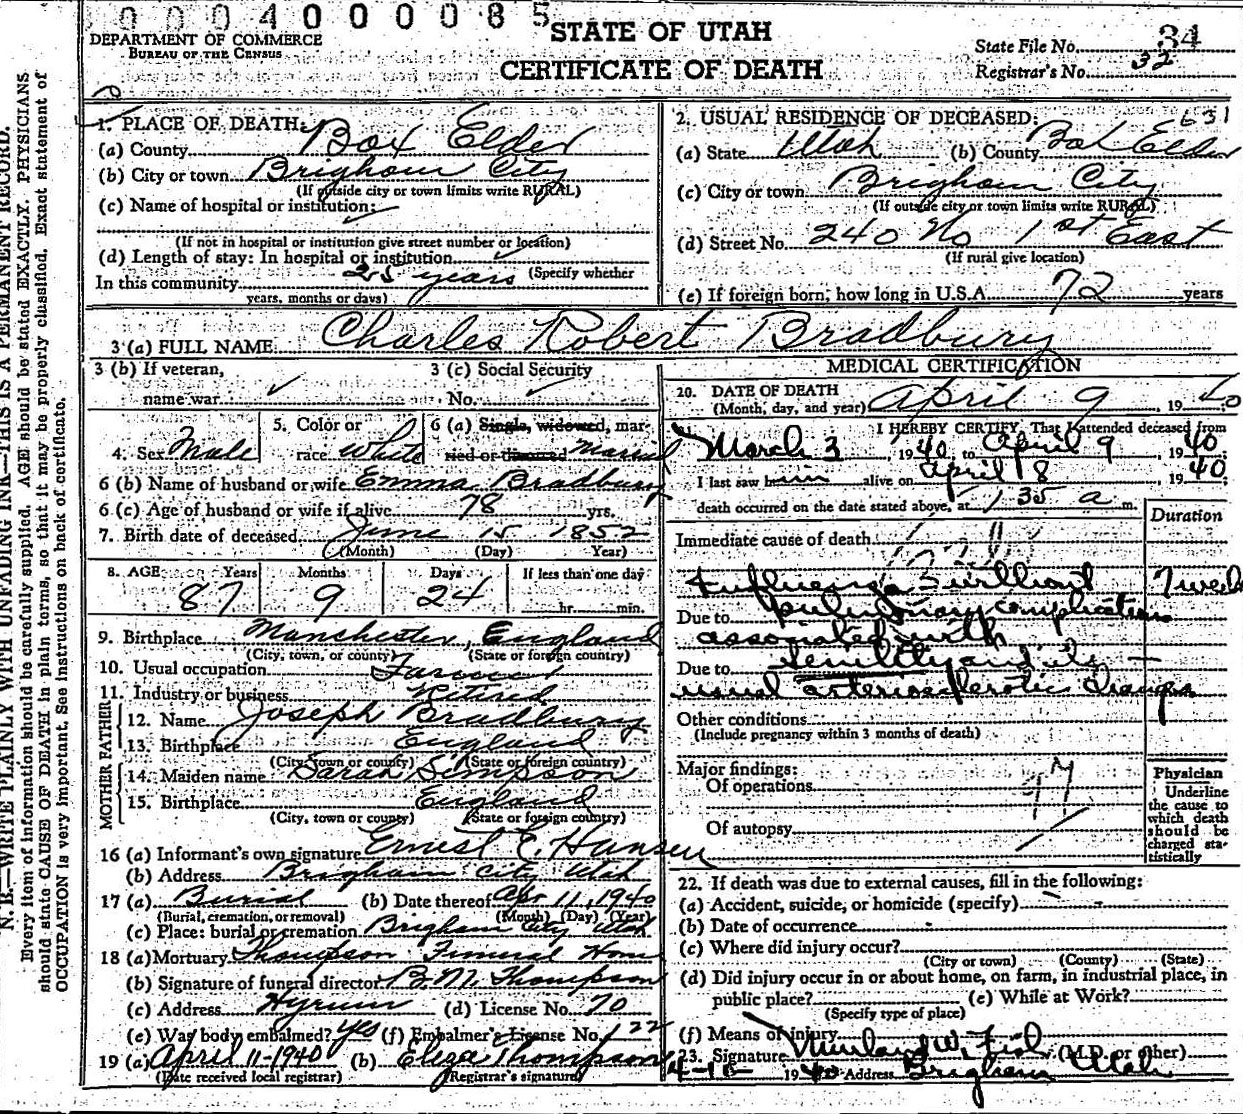 000400085
DEPARTMENT OF COMMERCE
BUREAU OF THE CENSUS
STATE OF UTAH
CERTIFICATE OF DEATH
State File No. 34
Registrar's No. 32
1. PLACE OF DEATH:
(a) County Box Elder
(b) City or town Brigham City
(If outside city or town limits write RURAL)
(c) Name of hospital or institution:
(If not in hospital or institution give street number or location)
(d) Length of stay: In hospital or institution
(Specify whether
In this community 25 years
years, months or days)
2. USUAL RESIDENCE OF DECEASED: 631
(a) State Utah (b) County Box Elder
(c) City or town Brigham City
(If outside city or town limits write RURAL)
(d) Street No. 240 No 1st East
(If rural give location)
(e) If foreign born, how long in U.S.A. 72 years
3 (a) FULL NAME Charles Robert Bradbury
3 (b) If veteran,
name war
3 (c) Social Security
No.
4. Sex Male
5. Color or
race White
6 (a) Single, widowed, mar-
ried or divorced Married
6 (b) Name of husband or wife Emma Bradbury
6 (c) Age of husband or wife if alive 78 yrs.
7. Birth date of deceased June 15 1852
(Month) (Day) Year)
8. AGE Years Months Days If less than one day
87 9 24 hr. min.
9. Birthplace Manchester, England
(City, town, or county) (State or foreign country)
10. Usual occupation Farmer
11. Industry or business Retired
FATHER
12. Name Joseph Bradbury
13. Birthplace England
(City, town or county) (State or foreign country)
MOTHER
14. Maiden name Sarah Simpson
15. Birthplace England
(City, town or county) (State or foreign country)
16 (a) Informant's own signature Ernest E. Hansen
(b) Address Brigham City Utah
17 (a) Burial (b) Date thereof Apr 11, 1940
(Burial, cremation, or removal) (Month) (Day) (Year)
(c) Place: burial or cremation Brigham City Utah
18 (a) Mortuary Thompson Funeral Home
(b) Signature of funeral director B. M. Thompson
(c) Address Hyrum (d) License No. 70
(e) Was body embalmed? yes (f) Embalmer's License No. 122
19 (a) April 11-1940 (b) Eliza Thompson
(Date received local registrar) (Registrar's signature)
MEDICAL CERTIFICATION
20. DATE OF DEATH
(Month, day, and year) April 9, 1940
I HEREBY CERTIFY, That I attended deceased from
March 3, 1940, to April 9, 1940
I last saw him alive on April 8, 1940;
death occurred on the date stated above, at 1 35 a m.
Duration
Immediate cause of death
Influenza without
pulmonary complication
Due to
associated with
Due to senility and its
usual arteriosclerotic changes
Other conditions
(Include pregnancy within 3 months of death)
Major findings:
Of operations
Of autopsy
Physician
Underline
the cause to
which death
should be
charged sta-
tistically
22. If death was due to external causes, fill in the following:
(a) Accident, suicide, or homicide (specify)
(b) Date of occurrence
(c) Where did injury occur?
(City or town) (County) (State)
(d) Did injury occur in or about home, on farm, in industrial place, in
public place? (e) While at Work?
(Specify type of place)
(f) Means of injury
23. Signature W. (M.D. or other)
4-10 1940 Address Brigham Utah
N. B.—WRITE PLAINLY WITH UNFADING INK—THIS IS A PERMANENT RECORD.
Every item of information should be carefully supplied. AGE should be stated EXACTLY. PHYSICIANS
should state CAUSE OF DEATH in plain terms, so that it may be properly classified. Exact statement of
OCCUPATION is very important. See instructions on back of certificate.